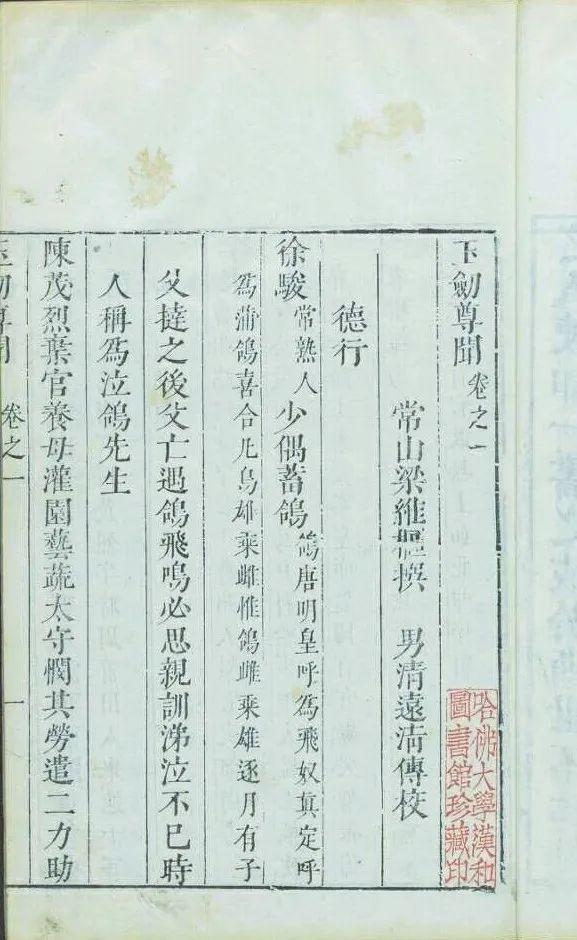 玉劒尊聞 卷之一
哈佛大學漢和
圖書館珍藏印
常山梁維樞撰 男清遠清傳校
德行
徐駿常熟人少偶蓄鴿鴿唐明皇呼爲飛奴眞定呼
爲蒲鴿喜合凡鳥雄乘雌惟鴿雌乘雄逐月有子
父撻之後父亡遇鴿飛鳴必思親訓涕泣不已時
人稱爲泣鴿先生
陳茂烈棄官養母灌園藝蔬太守憫其勞遣二力助
玉劒尊聞 卷之一 一